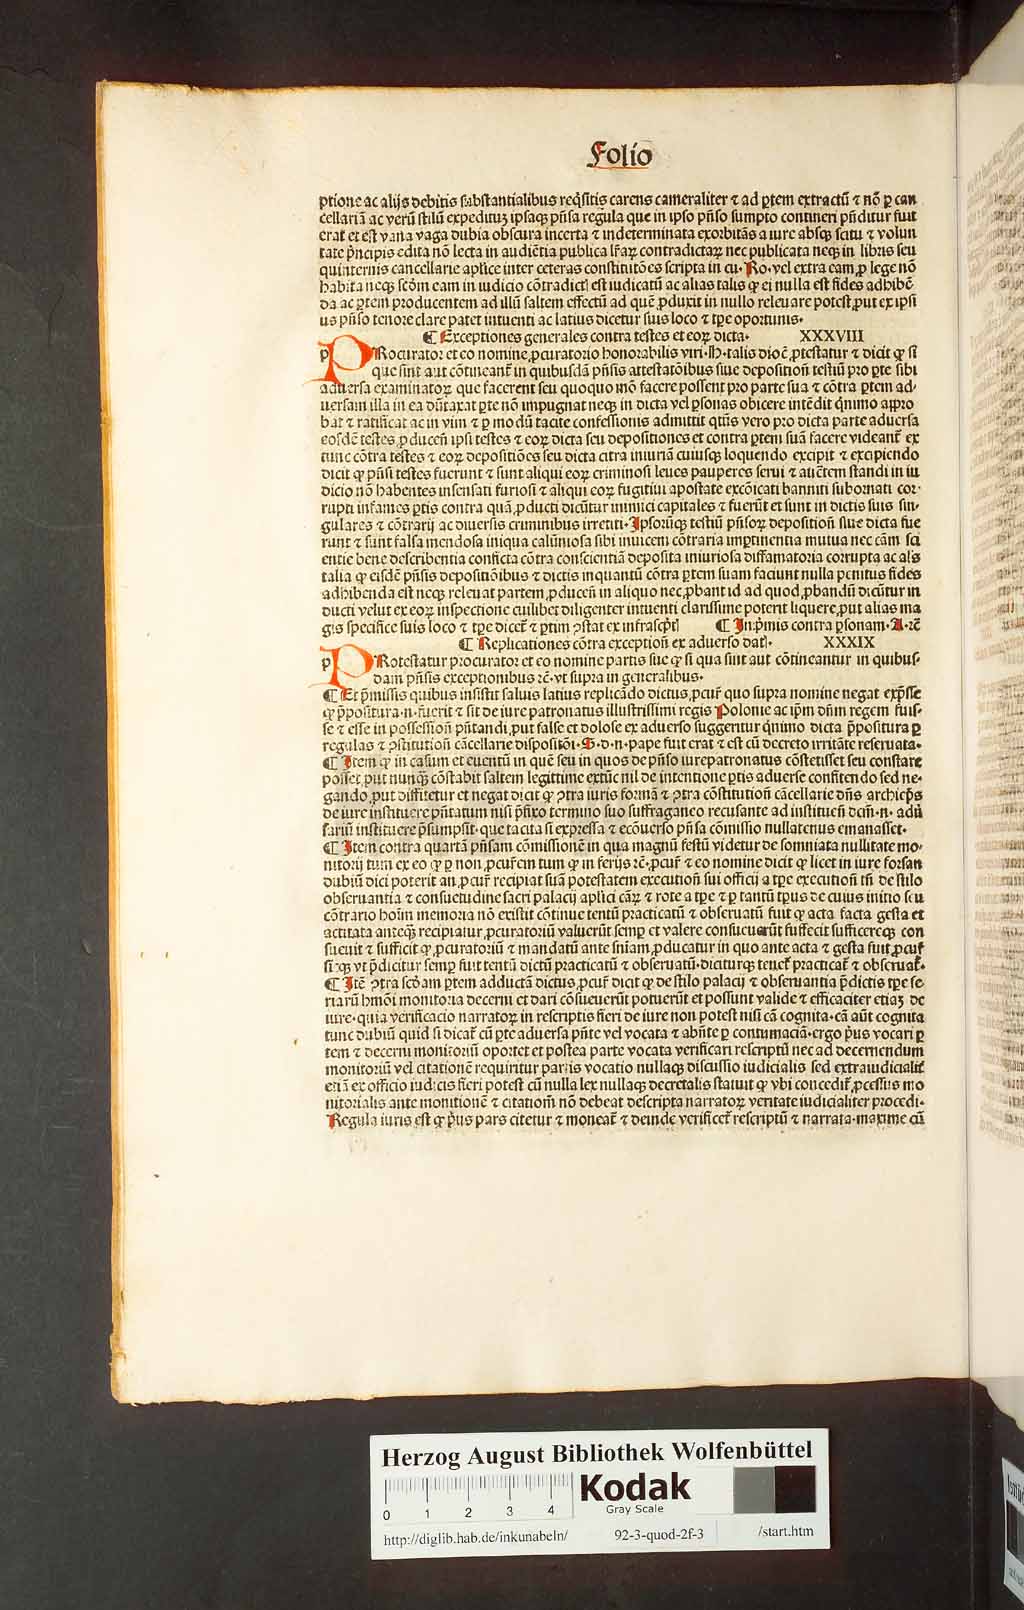 Folio
ptione ac alijs debitis substantialibus reqͥsitis carens cameraliter ⁊ ad ꝑtem extractū ⁊ nō ꝑ can
cellariā ac verū stilū expedituꝫ ipsaqꝫ pn̄sa regula que in ipso pn̄so sumpto contineri pn̄ditur fuit
erat et est vana vaga dubia obscura incerta ⁊ indeterminata exorbitās a iure absqꝫ scitu ⁊ volun
tate p̄ncipis edita nō lecta in audiētia publica lr̄aꝝ contradictaꝝ nec publicata neqꝫ in libris seu
quinternis cancellarie aplice inter ceteras constitutōes scripta in cu. Ro. vel extra eam ꝓ lege nō
habita neqꝫ scd̄m eam in iudicio cōtradictī est iudicatū ac alias talis ꝙ ei nulla est fides adhibē
da ac ꝑtem producentem ad illū saltem effectū ad quē ꝓduxit in nullo releuare potest ꝓut ex ipsi
us pn̄so tenore clare patet intuenti ac latius dicetur suis loco ⁊ tꝑe oportunis.
¶ Exceptiones generales contra testes et eoꝝ dicta. XXXVIII
PRocurator et eo nomine ꝓcuratorio honorabilis viri .H. talis dioc̄ ꝓtestatur ⁊ dicit ꝙ si
que sint aut cōtineant in quibusdā pn̄sis attestatōibus siue deposition̄ testiū pro ꝑte sibi
aduersa examinatoꝝ que facerent seu quoquo mō facere possent pro parte sua ⁊ cōtra ꝑtem ad-
uersam illa in ea dūtaxat ꝑte nō impugnat neqꝫ in dicta vel ꝑsonas obicere intēdit qͥnimo appro
bat ⁊ ratificat ac in vim ⁊ ꝑ modū tacite confessionis admittit qͣtus vero pro dicta parte aduersa
eosdē testes ꝓducen̄ ipsi testes ⁊ eoꝝ dicta seu depositiones et contra ꝑtem suā facere videant̄ ex
tunc cōtra testes ⁊ eoꝝ depositiōes seu dicta citra iniuriā cuiusqꝫ loquendo excipit ⁊ excipiendo
dicit ꝙ pn̄si testes fuerunt ⁊ sunt aliqui eoꝝ criminosi leues pauperes serui ⁊ autētem standi in iu
dicio nō habentes insensati furiosi ⁊ aliqui eoꝝ fugitiui apostate excōicati banniti subornati cor-
rupti infames ꝑtis contra quā ꝓducti dicūtur inimici capitales ⁊ fuerūt et sunt in dictis suis sin-
gulares ⁊ cōtrarij ac diuersis criminibus irretiti. Ipsorūqꝫ testiū pn̄soꝝ deposition̄ siue dicta fue
runt ⁊ sunt falsa mendosa iniqua calūniosa sibi inuicem cōtraria imptinentia mutua nec cām sci
entie bene describentia conficta cōtra conscientiā deposita iniuriosa diffamatoria corrupta ac als
talia ꝙ eisdē pn̄sis depositiōibus ⁊ dictis inquantū cōtra ꝑtem suam faciunt nulla penitus fides
adhibenda est neqꝫ releuat partem ꝓducen̄ in aliquo nec ꝓbant id ad quod ꝓbandū dicūtur in
ducti velut ex eoꝝ inspectione cuilibet diligenter intuenti clarissime poterit liquere ꝓut alias ma
gis specifice suis loco ⁊ tꝑe dicet̄ ⁊ ꝑtim ꝯstat ex infrascptī ¶ Inp̄mis contra ꝑsonam. A. ⁊c̄
¶ Replicationes cōtra exception̄ ex aduerso datī. XXXIX
PRotestatur procurator et eo nomine partis sue ꝙ si qua sint aut cōtineantur in quibus-
dam pn̄sis exceptionibus ⁊c̄. vt supra in generalibus.
¶ Et p̄missis quibus insistit saluis latius replicādo dictus ꝓcur̄ quo supra nomine negat exp̄sse
ꝙ p̄positura .n. fuerit ⁊ sit de iure patronatus illustrissimi regis Polonie ac ip̄m dn̄m regem fuis-
se ⁊ esse in possession̄ pn̄tandi ꝓut false et dolose ex aduerso suggeritur qͥnimo dicta p̄positura ꝑ
regulas ⁊ ꝯstitution̄ cācellarie dispositōi. S. d. n. pape fuit erat ⁊ est cū decreto irritāte reseruata.
¶ Item ꝙ in casum et euentū in quē seu in quos de pn̄so iurepatronatus cōstetisset seu constare
posset ꝓut nunqͣ cōstabit saltem legittime extūc nil de intentione ꝑtis aduerse confitendo sed ne-
gando ꝓut diffitetur et negat dicit ꝙ ꝯtra iuris formā ⁊ ꝯtra cōstitution̄ cācellarie dn̄s archiep̄s
de iure instituere pn̄tatum nisi p̄fixo termino suo suffraganeo recusante ad instituen̄ dcm̄ .n. adū
sariū instituere p̄sumpsit. que tacita si expressa ⁊ ecōuerso pn̄sa cōmissio nullatenus emanasset.
¶ Item contra quartā pn̄sam cōmissionē in qua magnū festū videtur de somniata nullitate mo-
nitorij tum ex eo ꝙ ꝑ non ꝓcur̄em tum ꝙ in ferijs ⁊c̄. ꝓcur̄ ⁊ eo nomine dicit ꝙ licet in iure forsan
dubiū dici poterit an ꝓcur̄ recipiat suā potestatem execution̄ sui officij a tꝑe execution̄ tn̄ de stilo
obseruantia ⁊ consuetudine sacri palacij aplici cāꝝ ⁊ rote a tꝑe ⁊ ꝑ tantū tꝑus de cuius initio seu
cōtrario hoīm memoria nō existit cōtinue tentū practicatū ⁊ obseruatū fuit ꝙ acta facta gesta et
actitata anteqͣ recipiatur ꝓcuratoriū valuerūt semꝑ et valere consueuerūt suffecit sufficereqꝫ con
sueuit ⁊ sufficit ꝙ ꝓcuratoriū ⁊ mandatū ante sniam ꝓducatur in quo ante acta ⁊ gesta sint ꝓcur̄
sicqꝫ vt p̄dicitur semꝑ fuit tentū dictū practicatū ⁊ obseruatū. diciturqꝫ tenet̄ practicat̄ ⁊ obseruat̄.
¶ Itē ꝯtra scd̄am ꝑtem adductā dictus ꝓcur̄ dicit ꝙ de stilo palacij ⁊ obseruantia p̄dictis tꝑe fe
riarū hmōi monitoria decerni et dari cōsueuerūt potuerūt et possunt valide ⁊ efficaciter etiaꝫ de
iure. quia verificacio narratoꝝ in rescriptis fieri de iure non potest nisi cā cognita. cā aūt cognita
tunc dubiū quid si dicat̄ cū ꝑte aduersa pn̄te vel vocata ⁊ abn̄te ꝑ contumaciā. ergo p̄us vocari ꝑ
tem ⁊ decerni monitoriū oportet et postea parte vocata verificari rescriptū nec ad decernendum
monitoriū vel citationē requiritur partis vocatio nullaqꝫ discussio iudicialis sed extraiudicialit̄
etiā ex officio iudicis fieri potest cū nulla lex nullaqꝫ decretalis statuit ꝙ vbi concedit̄ ꝓcessus mo
nitorialis ante monitionē ⁊ citatiom̄ nō debeat descripta narratoꝝ veritate iudicialiter procedi.
Regula iuris est ꝙ p̄us pars citetur ⁊ moneat̄ ⁊ deinde verificet̄ rescriptū ⁊ narrata. maxime cū
Herzog August Bibliothek Wolfenbüttel
0 1 2 3 4
Kodak
Gray Scale
http://diglib.hab.de/inkunabeln/ 92-3-quod-2f-3 /start.htm